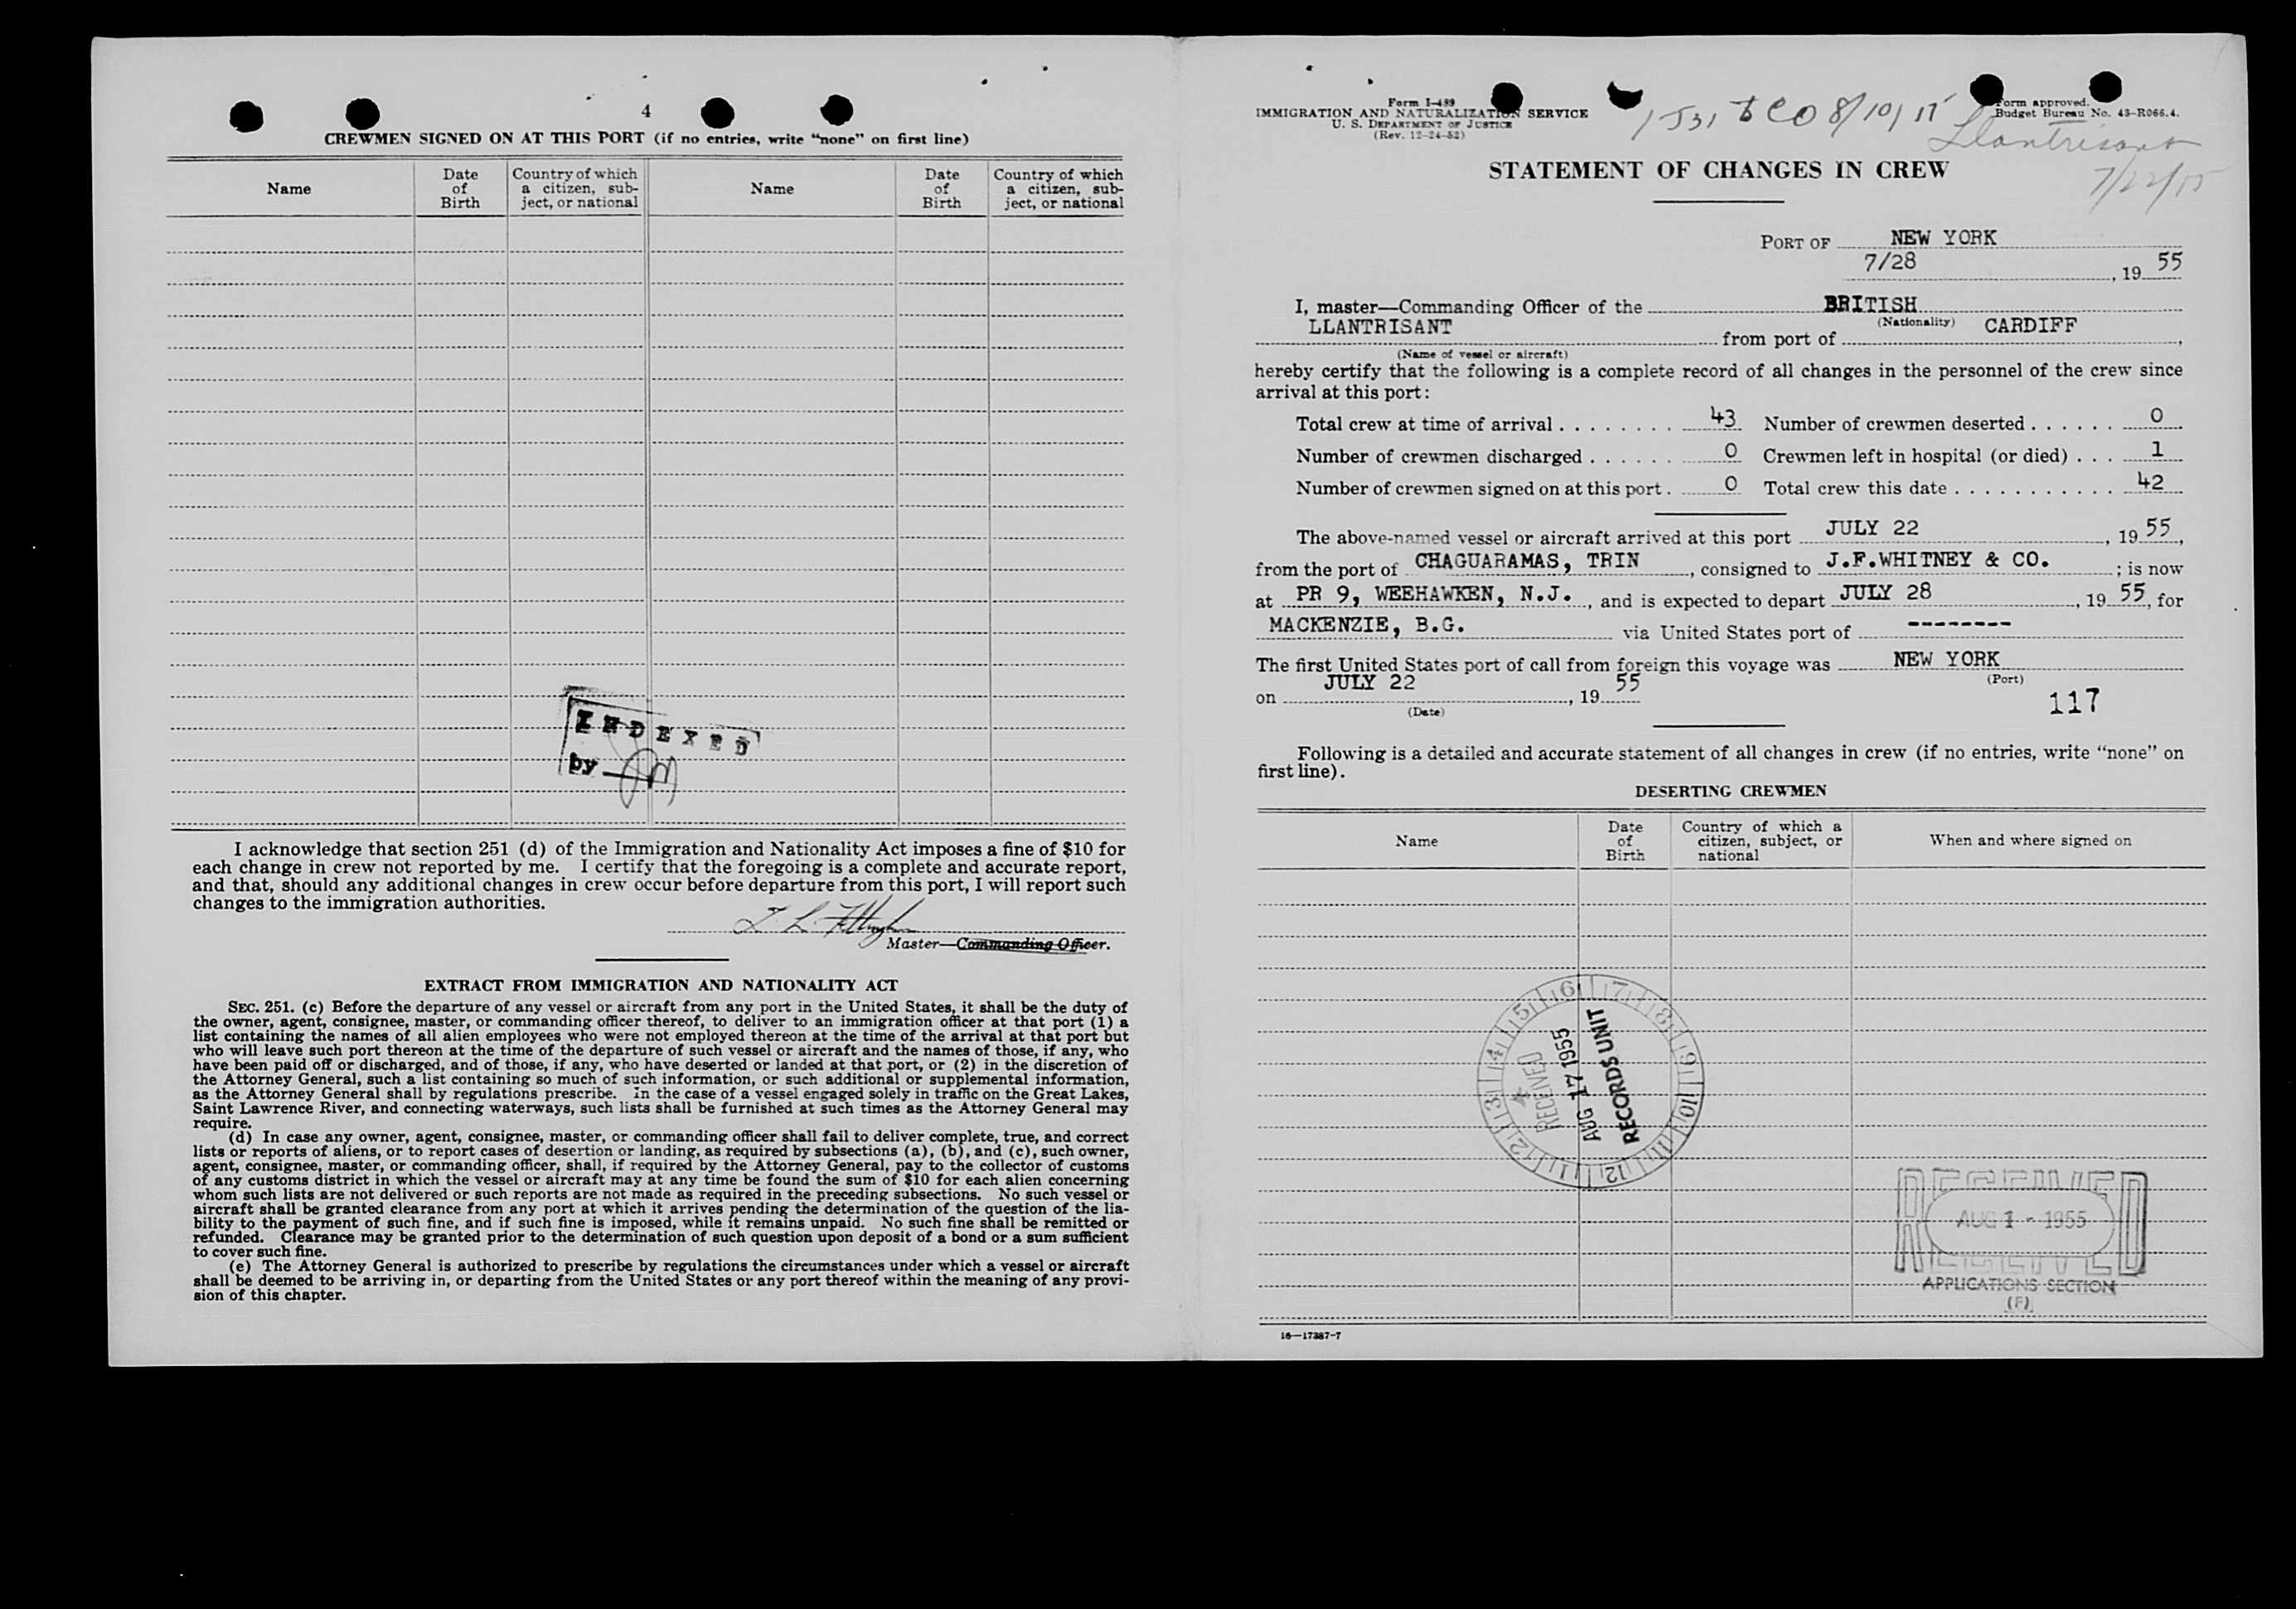 4
CREWMEN SIGNED ON AT THIS PORT (if no entries, write "none" on first line)
Name
Date of Birth
Country of which a citizen, sub-ject, or national
Name
Date of Birth
Country of which a citizen, sub-ject, or national
INDEXED
by
I acknowledge that section 251 (d) of the Immigration and Nationality Act imposes a fine of $10 for
each change in crew not reported by me. I certify that the foregoing is a complete and accurate report,
and that, should any additional changes in crew occur before departure from this port, I will report such
changes to the immigration authorities.
Master—Commanding Officer.
EXTRACT FROM IMMIGRATION AND NATIONALITY ACT
SEC. 251. (c) Before the departure of any vessel or aircraft from any port in the United States, it shall be the duty of
the owner, agent, consignee, master, or commanding officer thereof, to deliver to an immigration officer at that port (1) a
list containing the names of all alien employees who were not employed thereon at the time of the arrival at that port but
who will leave such port thereon at the time of the departure of such vessel or aircraft and the names of those, if any, who
have been paid off or discharged, and of those, if any, who have deserted or landed at that port, or (2) in the discretion of
the Attorney General, such a list containing so much of such information, or such additional or supplemental information,
as the Attorney General shall by regulations prescribe. In the case of a vessel engaged solely in traffic on the Great Lakes,
Saint Lawrence River, and connecting waterways, such lists shall be furnished at such times as the Attorney General may
require.
(d) In case any owner, agent, consignee, master, or commanding officer shall fail to deliver complete, true, and correct
lists or reports of aliens, or to report cases of desertion or landing, as required by subsections (a), (b), and (c), such owner,
agent, consignee, master, or commanding officer, shall, if required by the Attorney General, pay to the collector of customs
of any customs district in which the vessel or aircraft may at any time be found the sum of $10 for each alien concerning
whom such lists are not delivered or such reports are not made as required in the preceding subsections. No such vessel or
aircraft shall be granted clearance from any port at which it arrives pending the determination of the question of the lia-
bility to the payment of such fine, and if such fine is imposed, while it remains unpaid. No such fine shall be remitted or
refunded. Clearance may be granted prior to the determination of such question upon deposit of a bond or a sum sufficient
to cover such fine.
(e) The Attorney General is authorized to prescribe by regulations the circumstances under which a vessel or aircraft
shall be deemed to be arriving in, or departing from the United States or any port thereof within the meaning of any provi-
sion of this chapter.
Form I-489
IMMIGRATION AND NATURALIZATION SERVICE
U. S. DEPARTMENT OF JUSTICE
(Rev. 12-24-52)
Form approved.
Budget Bureau No. 43-R066.4.
Llantrisant
7/22/55
STATEMENT OF CHANGES IN CREW
PORT OF NEW YORK
7/28, 19 55
I, master—Commanding Officer of the BRITISH
(Nationality)
LLANTRISANT from port of CARDIFF,
(Name of vessel or aircraft)
hereby certify that the following is a complete record of all changes in the personnel of the crew since
arrival at this port:
Total crew at time of arrival 43 Number of crewmen deserted 0
Number of crewmen discharged 0 Crewmen left in hospital (or died) 1
Number of crewmen signed on at this port 0 Total crew this date 42
The above-named vessel or aircraft arrived at this port JULY 22, 19 55,
from the port of CHAGUARAMAS, TRIN, consigned to J.F.WHITNEY & CO.; is now
at PR 9, WEEHAWKEN, N.J., and is expected to depart JULY 28, 19 55, for
MACKENZIE, B.G. via United States port of --------
The first United States port of call from foreign this voyage was NEW YORK
(Port)
on JULY 22, 19 55
(Date)
117
Following is a detailed and accurate statement of all changes in crew (if no entries, write "none" on
first line).
DESERTING CREWMEN
Name
Date of Birth
Country of which a citizen, subject, or national
When and where signed on
RECEIVED
AUG 17 1955
RECORDS UNIT
1 2 3 4 5 6 7 8 9 10 11 12
RECEIVED
AUG 1 - 1955
RECEIVED
APPLICATIONS SECTION
(F)
16—17387-7